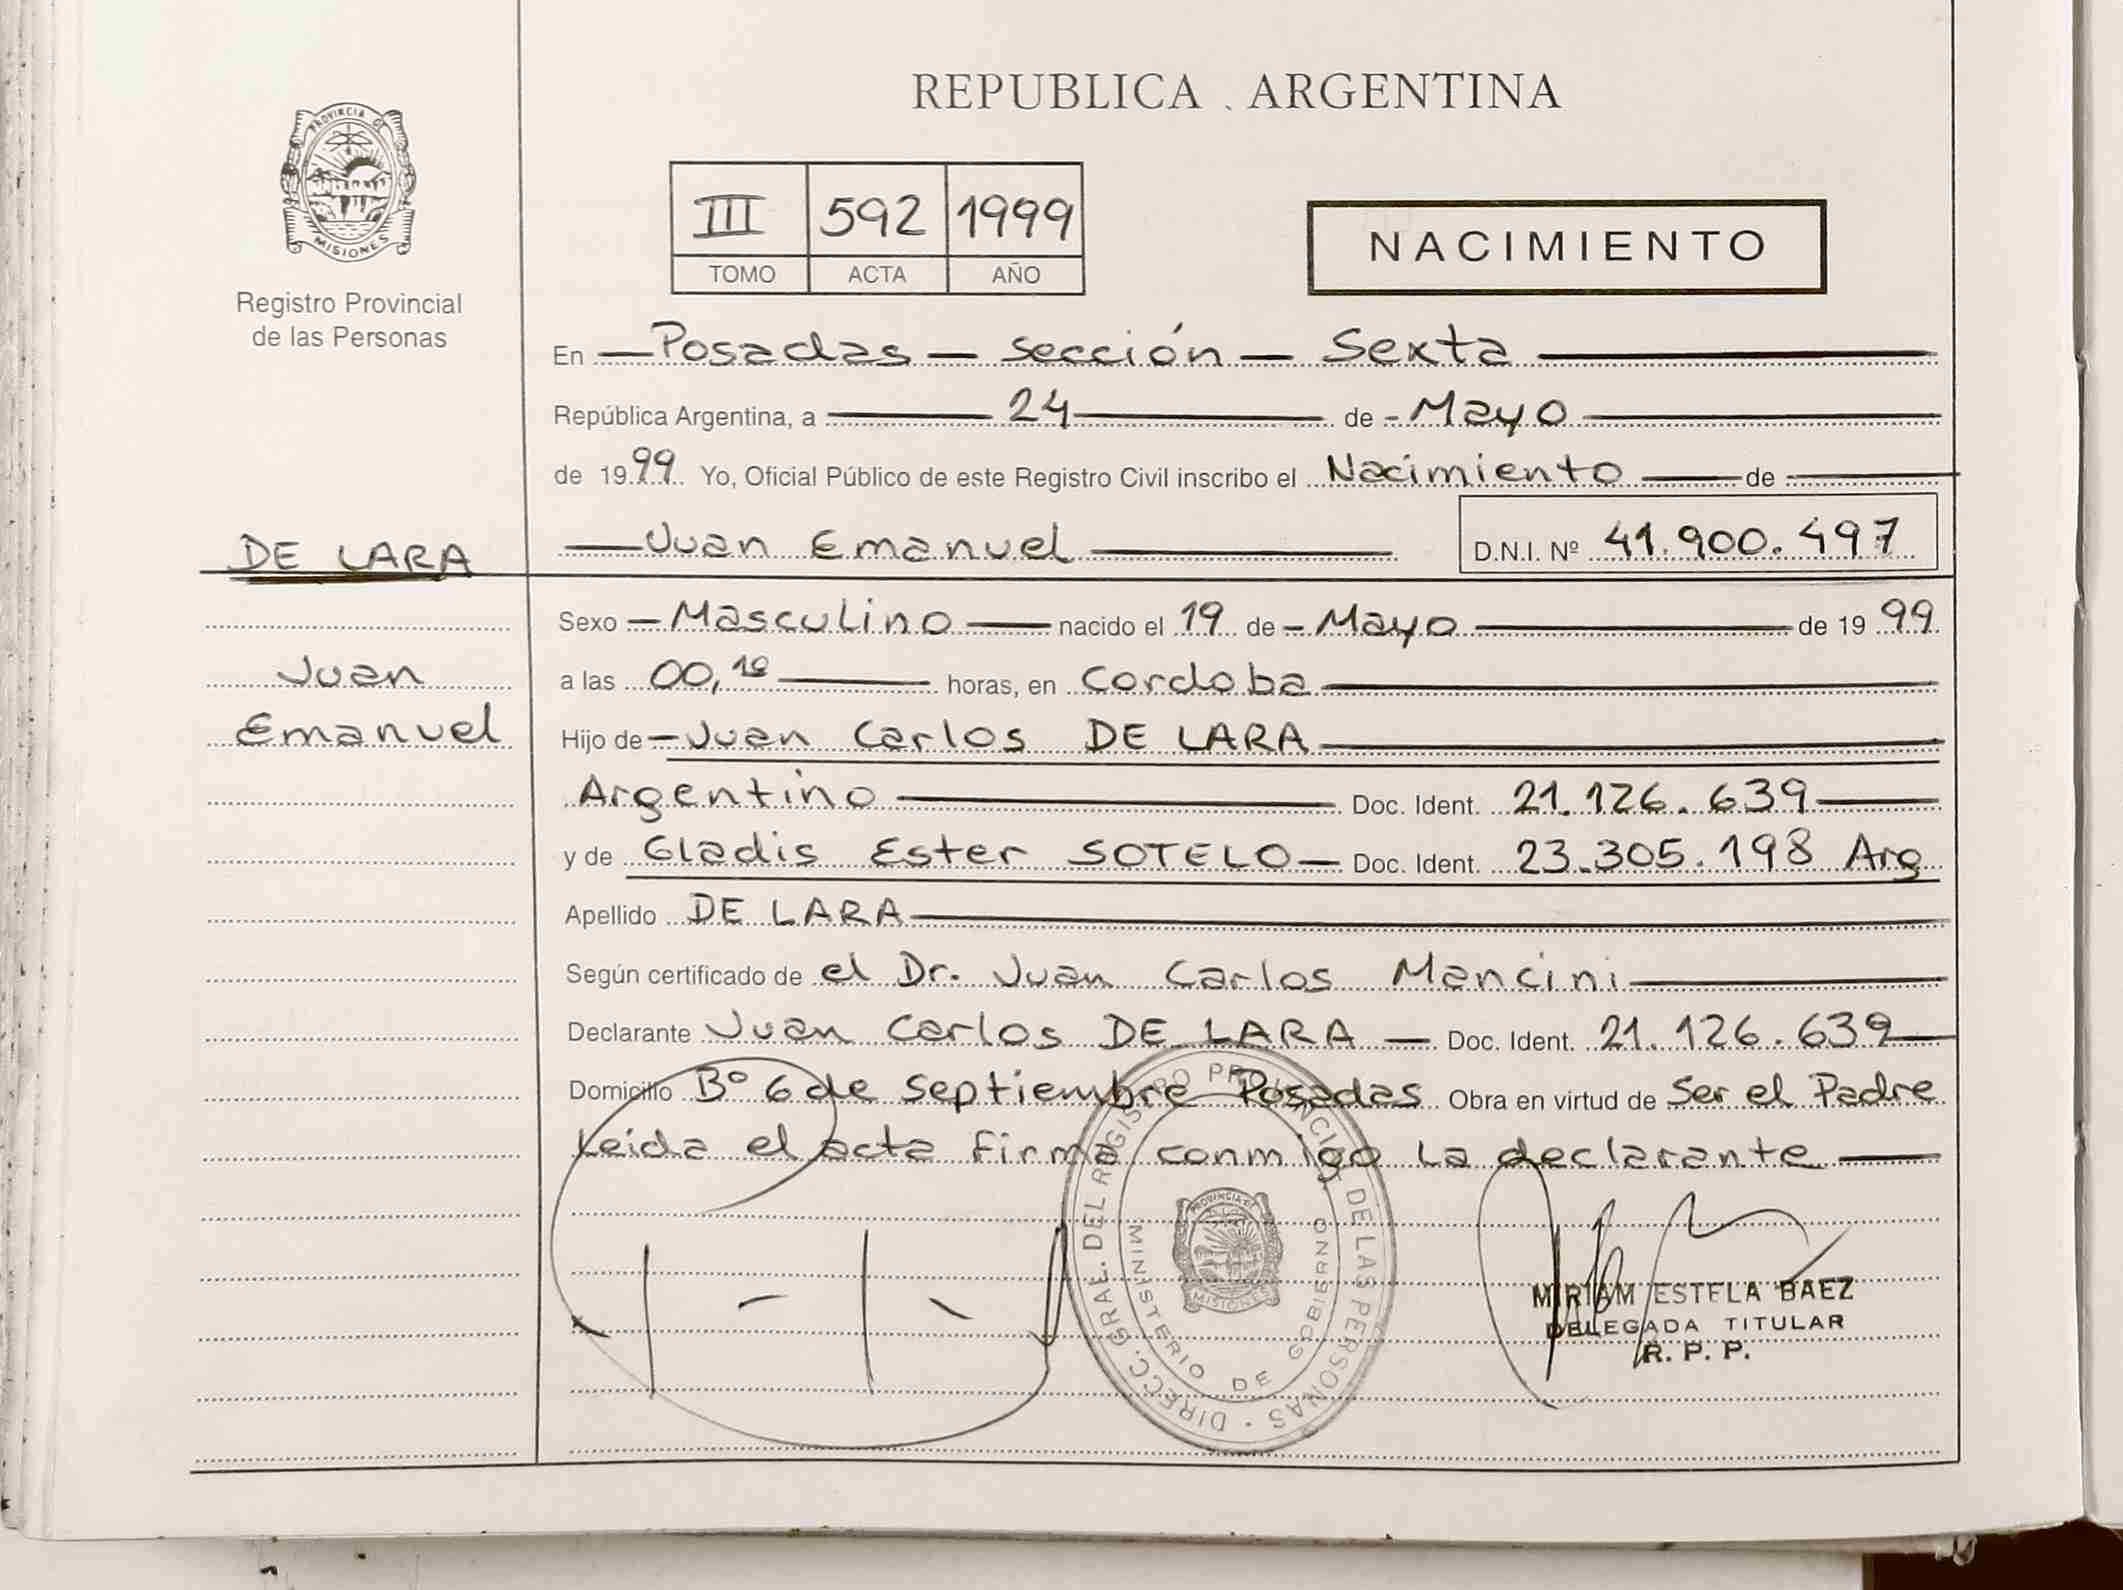 REPUBLICA ARGENTINA
PROVINCIA DE
MISIONES
Registro Provincial
de las Personas
III 592 1999
TOMO ACTA AÑO
NACIMIENTO
En Posadas - sección - Sexta
República Argentina, a 24 de Mayo
de 1999 Yo, Oficial Público de este Registro Civil inscribo el Nacimiento de
DE LARA
Juan Emanuel D.N.I. Nº 41.900.497
Sexo Masculino nacido el 19 de Mayo de 1999
Juan
a las 00,10 horas, en Cordoba
Emanuel
Hijo de Juan Carlos DE LARA
Argentino Doc. Ident. 21.126.639
y de Gladis Ester SOTELO Doc. Ident. 23.305.198 Arg
Apellido DE LARA
Según certificado de el Dr. Juan Carlos Mancini
Declarante Juan Carlos DE LARA Doc. Ident. 21.126.639
Domicilio Bº 6 de Septiembre Posadas Obra en virtud de Ser el Padre
Leida el acta firma conmigo la declarante
DIRECC. GRAL. DEL REGISTRO PROVINCIAL DE LAS PERSONAS
MINISTERIO DE GOBIERNO
PROVINCIA DE
MISIONES
MIRIAM ESTELA BAEZ
DELEGADA TITULAR
R. P. P.